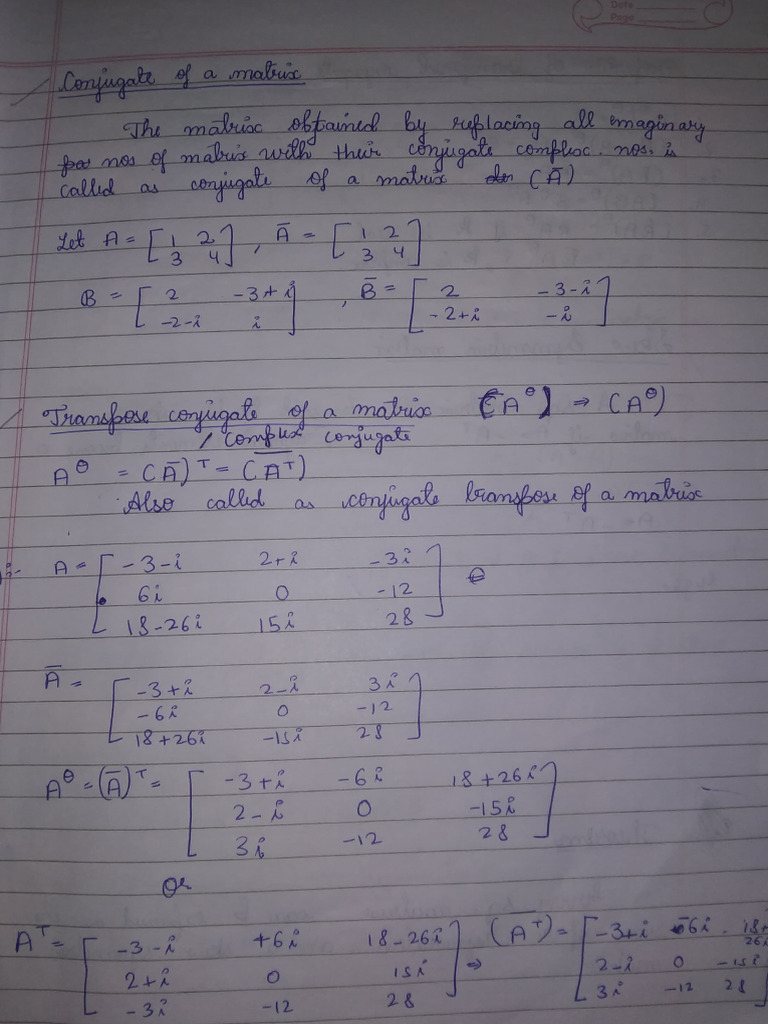 Date
Page
Conjugate of a matrix
The matrix obtained by replacing all imaginary
nos of matrix with their conjugate complex nos. is
called as conjugate of a matrix (Ā)
Let A = [ 1 2 , Ā = [ 1 2
3 4 ] 3 4 ]
B = [ 2 -3+i , B̄ = [ 2 -3-i
-2-i i ] -2+i -i ]
Transpose conjugate of a matrix (A^θ) ⇒ (A^θ)
/ complex conjugate
A^θ = (Ā)^T = (\overline{A^T})
Also called as conjugate transpose of a matrix
A = [ -3-i 2+i -3i
6i 0 -12
18-26i 15i 28 ]
Ā = [ -3+i 2-i 3i
-6i 0 -12
18+26i -15i 28 ]
A^θ = (Ā)^T = [ -3+i -6i 18+26i
2-i 0 -15i
3i -12 28 ]
Or
A^T = [ -3-i +6i 18-26i ⇒ (\overline{A^T}) = [ -3+i -6i 18+26i
2+i 0 15i 2-i 0 -15i
-3i -12 28 ] 3i -12 28 ]